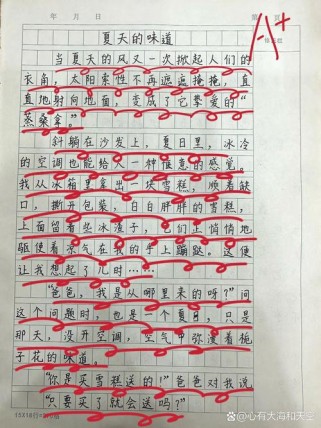 年 月 日
夏天的味道
当夏天的风又一次掀起人们的
衣角,太阳索性不再遮遮掩掩,直
直地射向地面,变成了它挚爱的“
蒸桑拿”
斜躺在沙发上,夏日里,冰冷
的空调也能给人一种惬意的感觉。
我从冰箱里拿出一块雪糕,顺着缺
口,撕开包装,白白胖胖的雪糕,
上面留着些冰渣子,它们正悄悄地
驱使着凉气在我的手上蹦跶。这使
让我想起了儿时……
“爸爸,我是从哪里来的呀?”问
这个问题时,也是一个夏日,只是
那天,没开空调,空气中弥漫着栀
子花的味道。
“你是买雪糕送的!”爸爸对我说
“只要买了就会送吗?”
@心有大海和天空